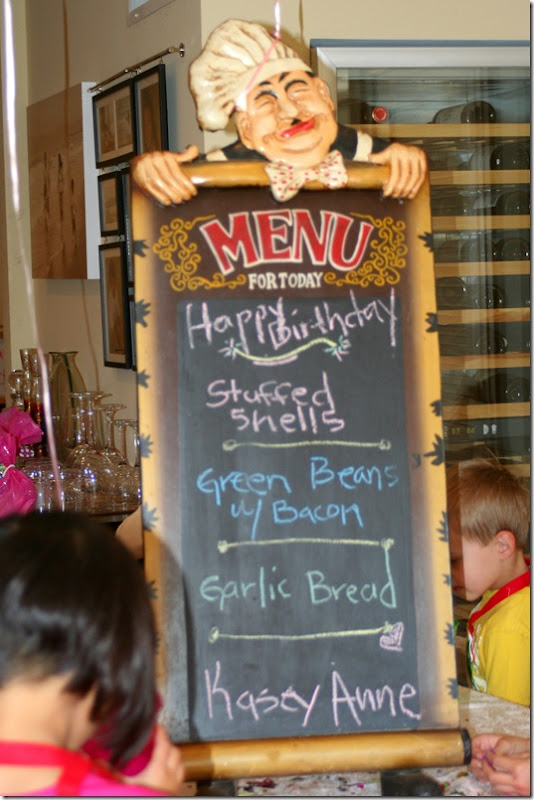 MENU
FOR TODAY
Happy Birthday
Stuffed
Shells
Green Beans
w/ Bacon
Garlic Bread
Kasey Anne